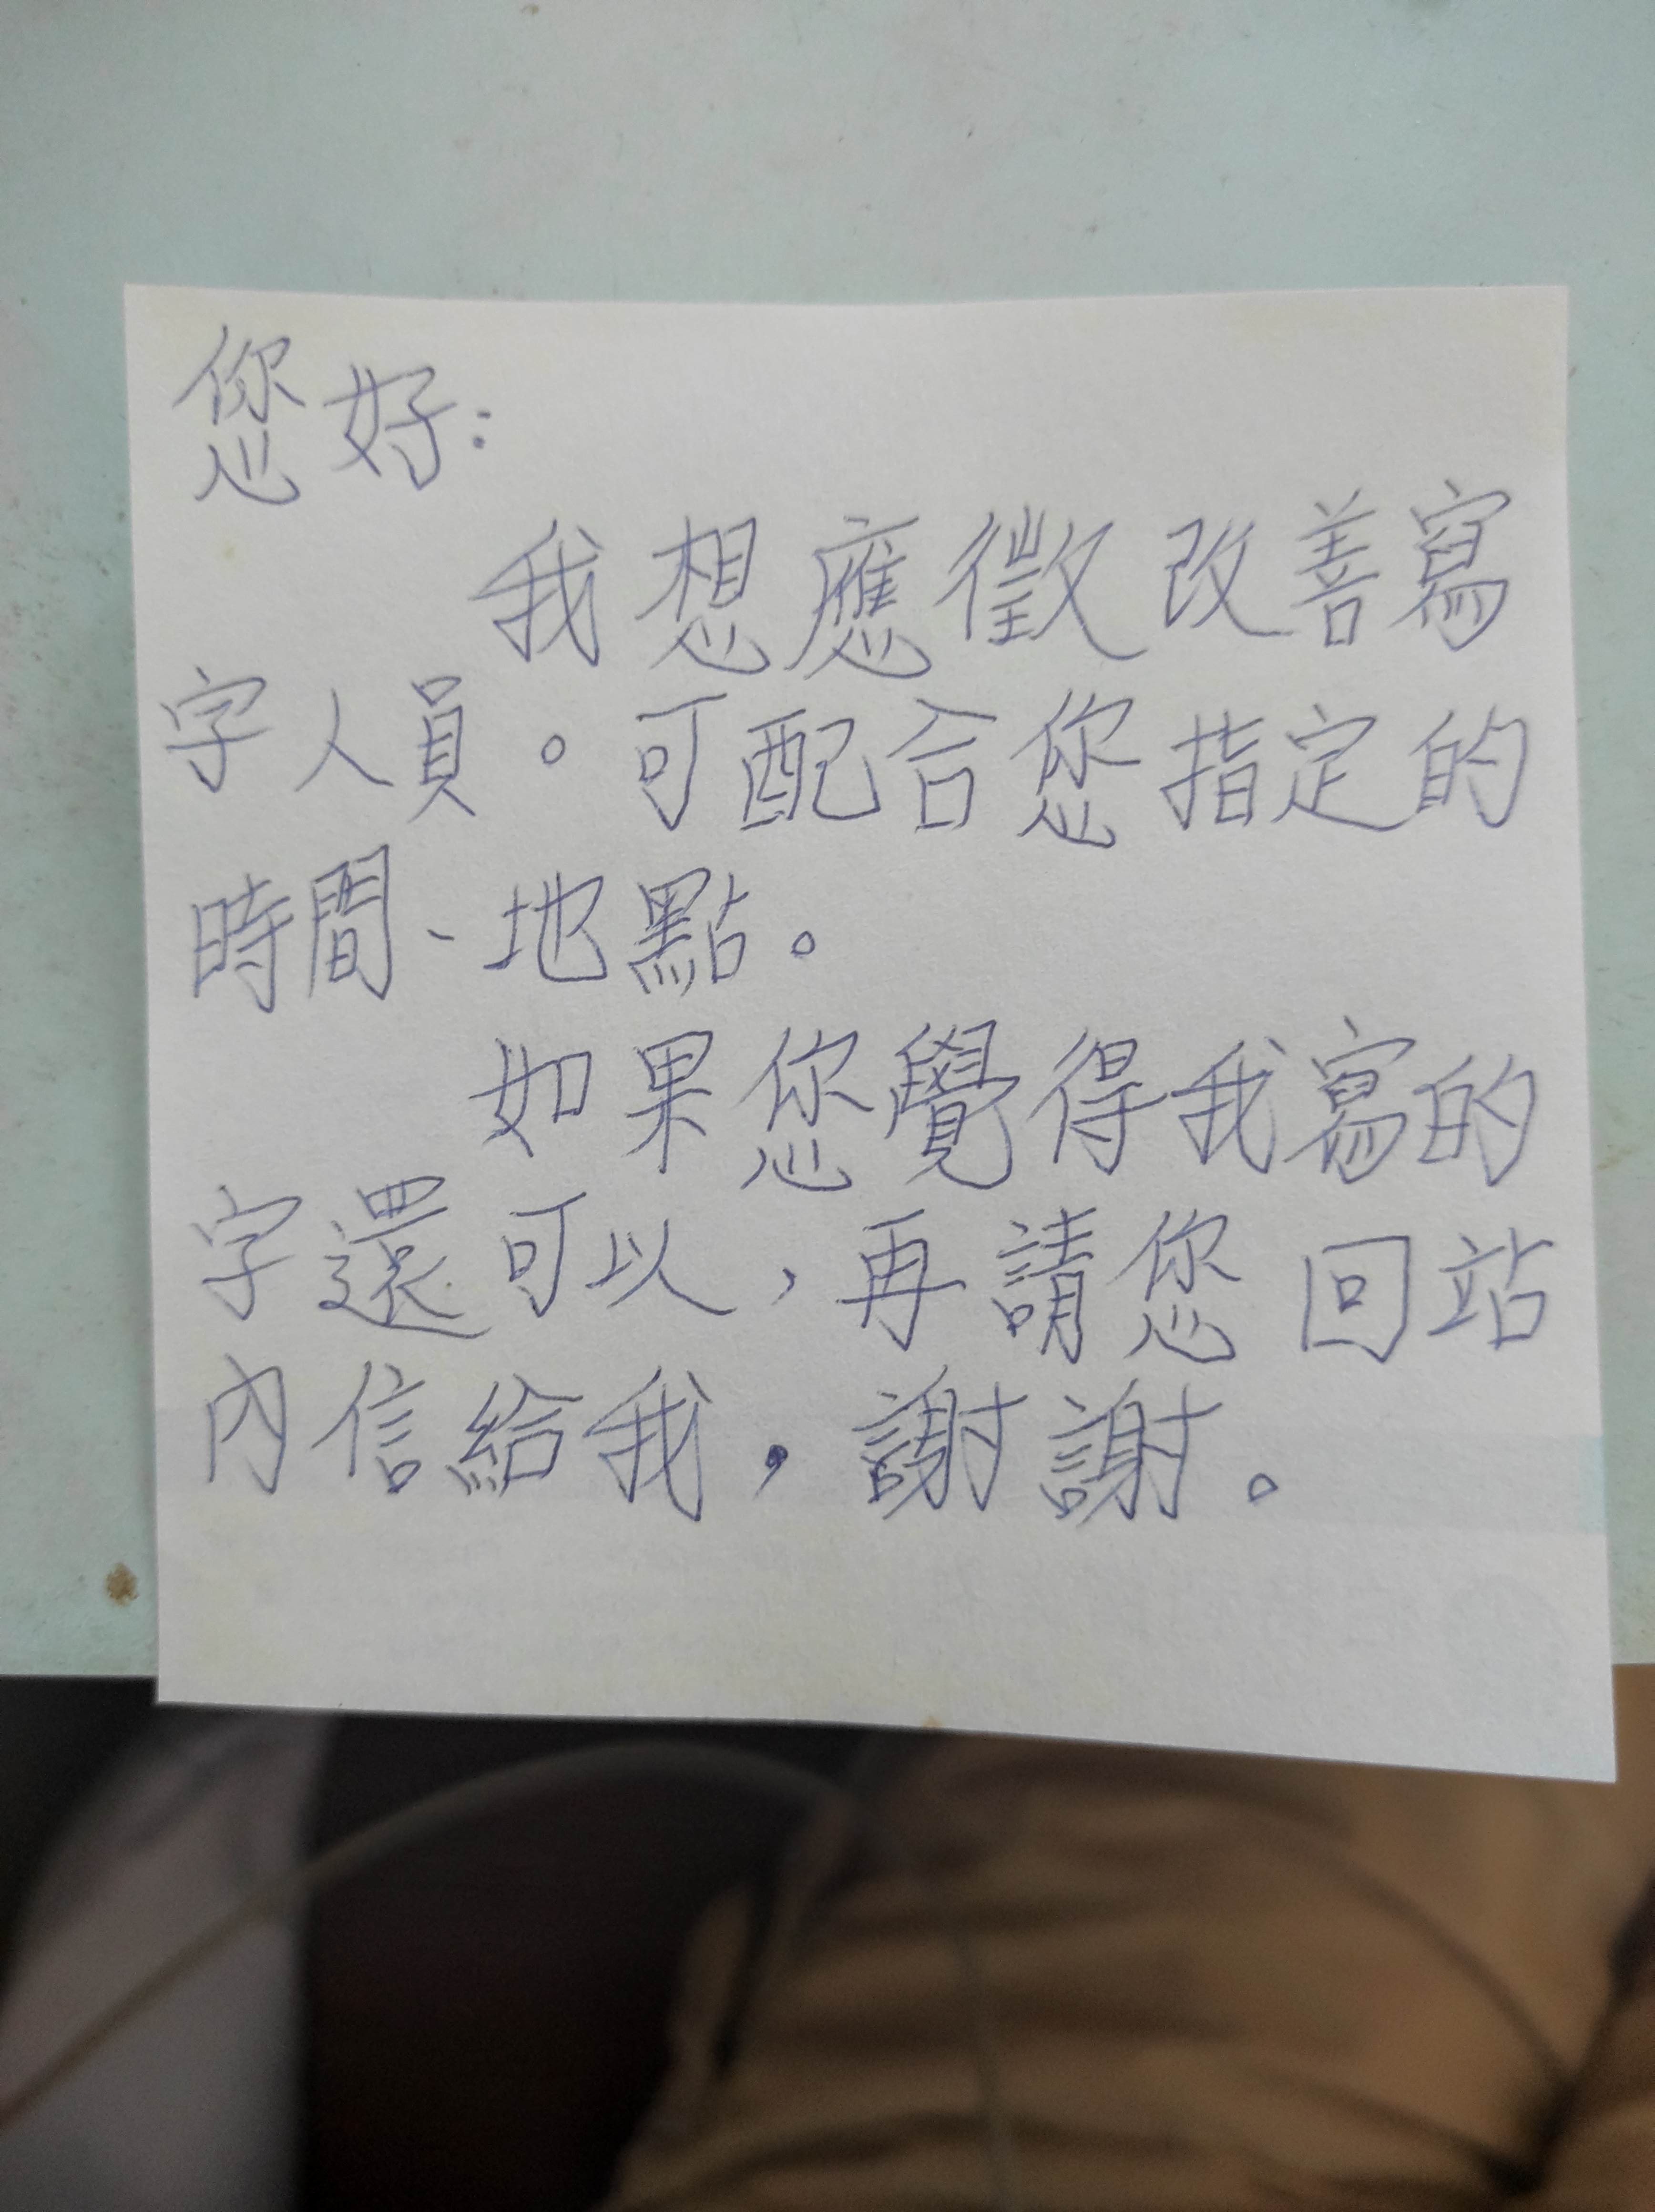 您好：
我想應徵改善寫
字人員。可配合您指定的
時間、地點。
如果您覺得我寫的
字還可以，再請您回站
內信給我，謝謝。